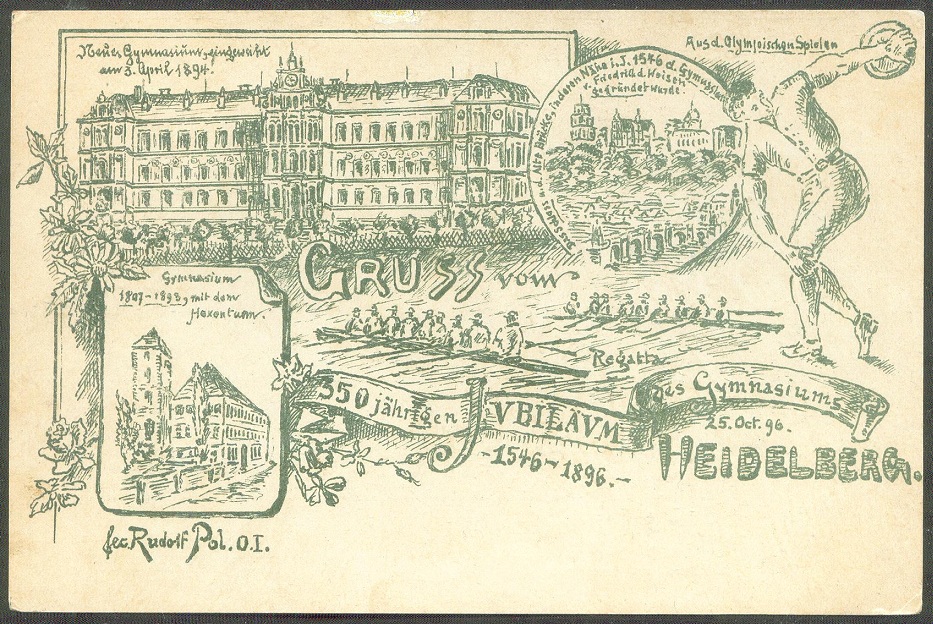 Neues Gymnasium, eingeweiht
am 3. April 1894.
Aus d. Olympischen Spielen
Schloss u. Alte Brücke, in deren Nähe i. J. 1546 d. Gymnasium
v. Friedrich d. Weisen
gegründet wurde.
GRUSS vom
Gymnasium
1807-1893, mit dem
Hexenturm.
Regatta
350 jährigen JVBILÄVM des Gymnasiums
25. Oct. 96.
-1546-1896.-
HEIDELBERG.
fec. Rudolf Pol. O.I.